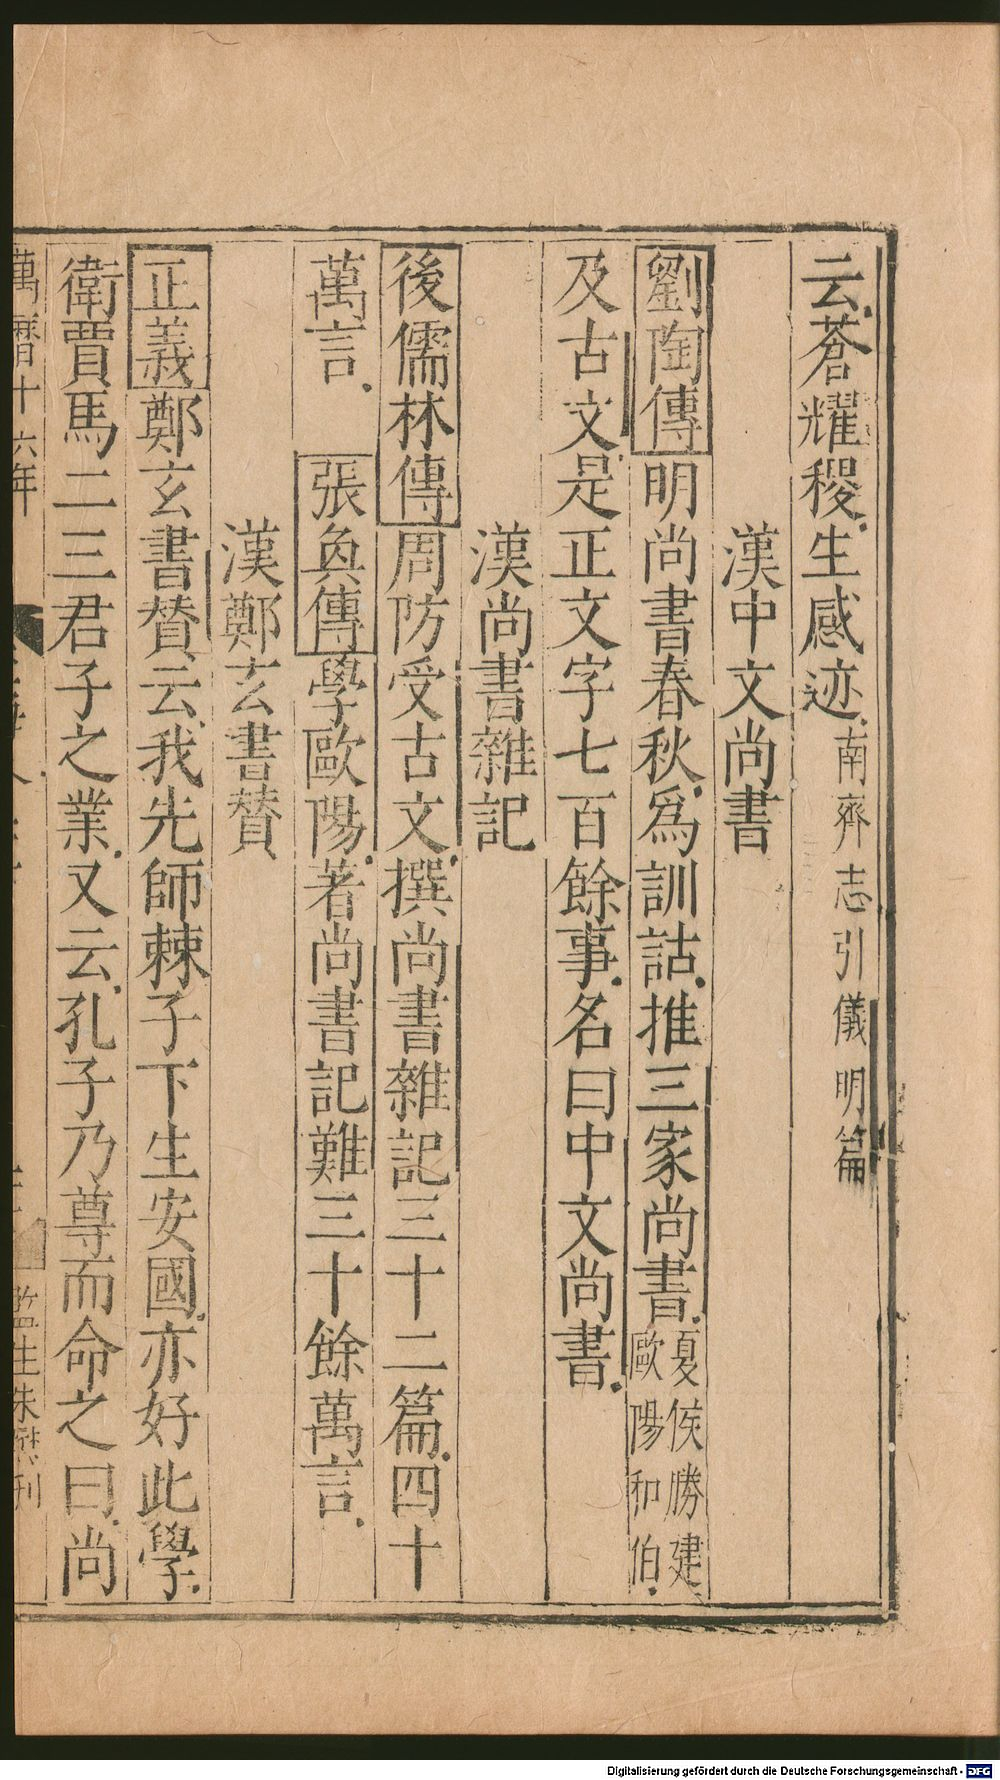 云蒼耀稷生感迹南齊志引儀明篇
漢中文尚書
劉陶傳明尚書春秋為訓詁推三家尚書夏侯勝建歐陽和伯
及古文是正文字七百餘事名曰中文尚書
漢尚書雜記
後儒林傳周防受古文撰尚書雜記三十二篇四十
萬言 張奐傳學歐陽著尚書記難三十餘萬言
漢鄭玄書贊
正義鄭玄書贊云我先師棘子下生安國亦好此學
衛賈馬二三君子之業又云孔子乃尊而命之曰尚
萬曆十六年 監生朱刊
Digitalisierung gefördert durch die Deutsche Forschungsgemeinschaft - DFG